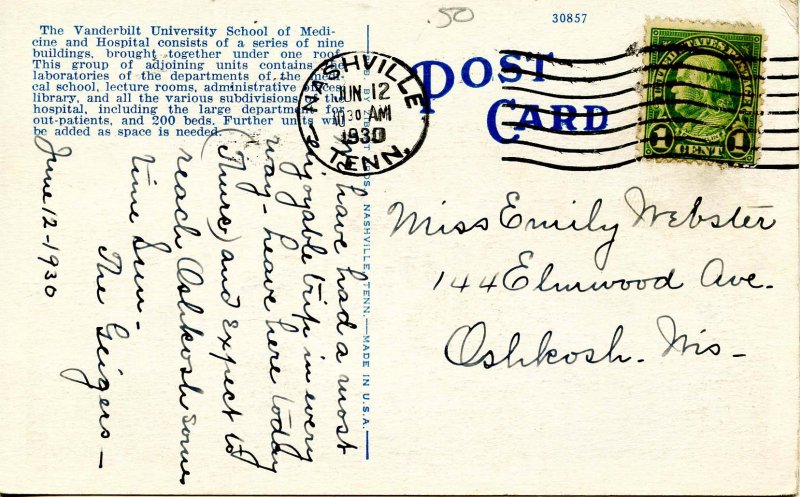 The Vanderbilt University School of Medi-
cine and Hospital consists of a series of nine
buildings, brought together under one roof.
This group of adjoining units contains the
laboratories of the departments of the
cal school, lecture rooms, administrative
library, and all the various subdivisions the
hospital, including the large department for
out-patients, and 200 beds. Further units will
be added as space is needed.
have had a most
enjoyable trip in every
way - leave here today
(Thurs) and expect to
reach Oshkosh some
time Sun-
The Geigers -
June 12-1930
NASHVILLE, TENN. — MADE IN U.S.A.
.50
30857
POST
CARD
NASHVILLE
JUN 12
10 30 AM
1930
TENN.
UNITED STATES POSTAGE
1 CENT 1
Miss Emily Webster
144 Elmwood Ave.
Oshkosh. Wis-